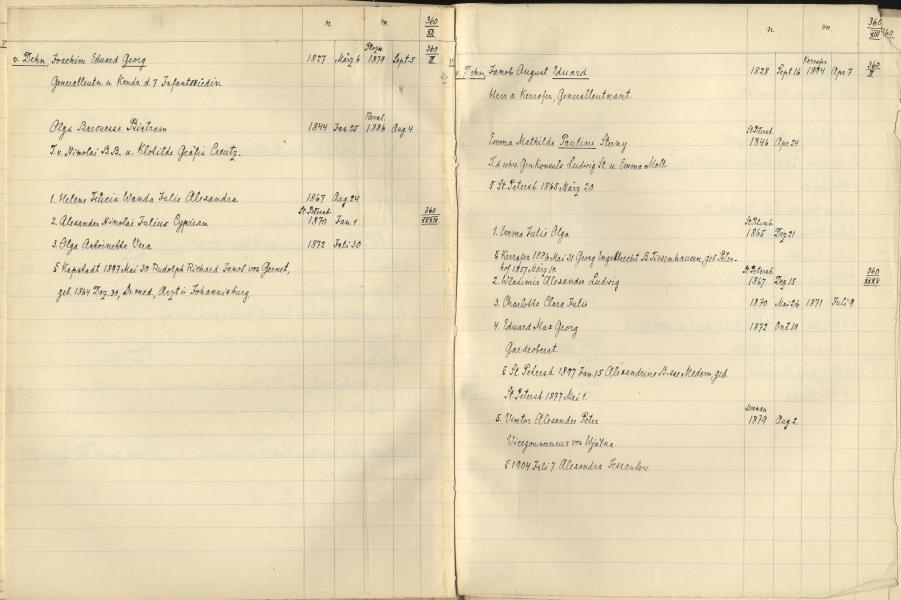 n. m. 360
XII
v. Dehn, Joachim Eduard Georg 1827 März 6 1879 Sept. 5 360
II
Generalleutn. u. Kmdr. d. 7 Infanteriediv.
Olga Baronesse Bistram 1844 Jan. 25 1886 Aug. 4
T. v. Nikolai B. B. u. Klotilde Gräfin Creutz.
1. Helene Felicia Wanda Julie Alexandra 1867 Aug. 24
St. Petersb.
2. Alexander Nikolai Julius Cyprian 1870 Jan. 1 360
XXXIV
3. Olga Antoinette Vera 1872 Juli 30
§ Kapstadt 1897 Mai 30 Rudolph Richard Jakob von Gernet,
geb. 1864 Dez. 30, Dr. med., Arzt in Johannisburg.
n m. 360
XIII 360
v. Dehn, Jakob August Eduard 1828 Sept 16 1894 Apr. 7 360
II
Herr a. Kerrafer, Generalleutnant.
St. Petersb.
Emma Mathilde Pauline Stermy 1846 Apr. 24
T. d. schw. Gen. Konsuls Ludwig St. u. Emma Moll.
§ St. Petersb. 1865 März 20.
St. Petersb.
1. Emma Julie Olga 1865 Dez 21
§ Kerrafer 1886 Mai 31 Georg Engelbrecht B. Tiesenhausen, geb. Peter-
hof 1857 März 10.
St. Petersb.
2. Wladimir Alexander Ludwig 1867 Dez 15 360
XXXV
3. Charlotte Clara Julie 1870 Mai 26 1871 Juli 9
4. Eduard Max Georg 1872 Okt. 10
Gardeoberst.
§ St. Petersb. 1897 Jan. 15 Alexandrine B.sse Medem, geb.
St. Petersb 1877 Mai 1.
Moskau
5. Viktor Alexander Peter 1879 Aug. 2
Vicegouverneur von Wjätka
§ 1904 Juli 7 Alexandra